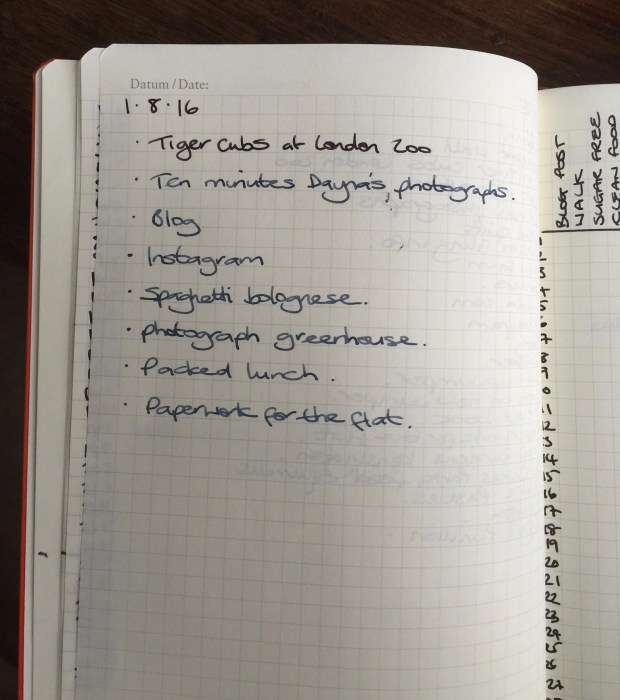 Datum / Date:
1·8·16
· Tiger cubs at London Zoo
· Ten minutes Dayna's photographs.
· Blog
· Instagram
· Spaghetti bolognese.
· photograph greenhouse.
· Packed lunch.
· Paperwork for the flat.
BLOG POST
WALK
SUGAR FREE
CLEAN FOOD
7
8
9
11
12
13
14
15
16
17
18
19
20
21
22
23
24
25
26
27